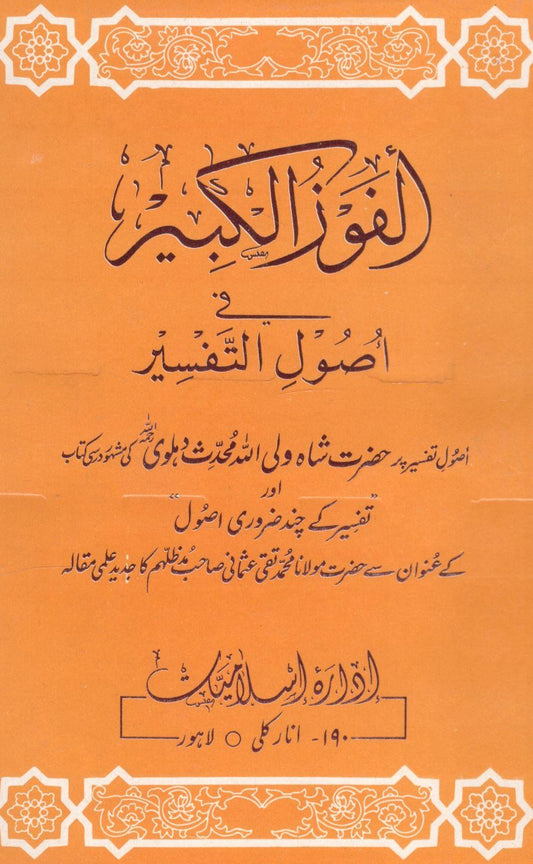 الفَوْزُ الکَبِیْر
فی
اُصُوْلِ التَّفْسِیْر
اُصُولِ تفسیر پر حضرت شاہ ولی اللہ مُحدّث دہلوی رحمہ اللہ کی مشہور درسی کتاب
اور
”تفسیر کے چند ضروری اصُول“
کے عُنوان سے حضرت مولانا محمّد تقی عثمانی صاحب مُدظلہم کا جدید علمی مقالہ
اِدارۂ اِسلامیات
۱۹۰- انارکلی ○ لاہور